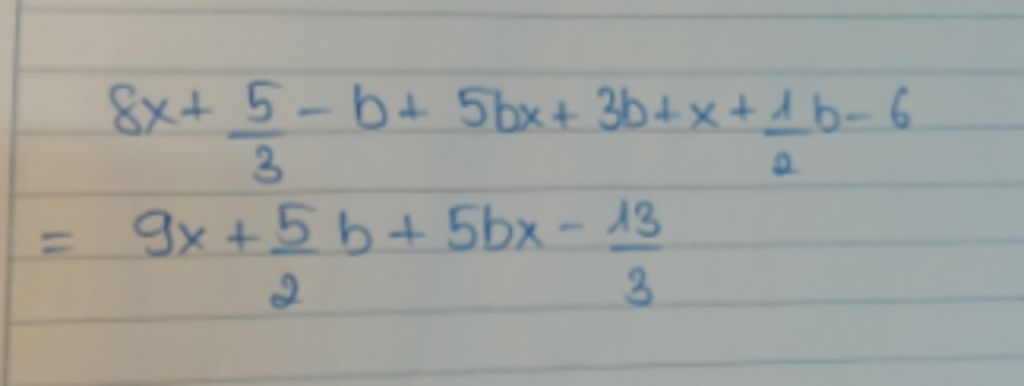 8x + 5/3 - b + 5bx + 3b + x + 1/2 b - 6
= 9x + 5/2 b + 5bx - 13/3